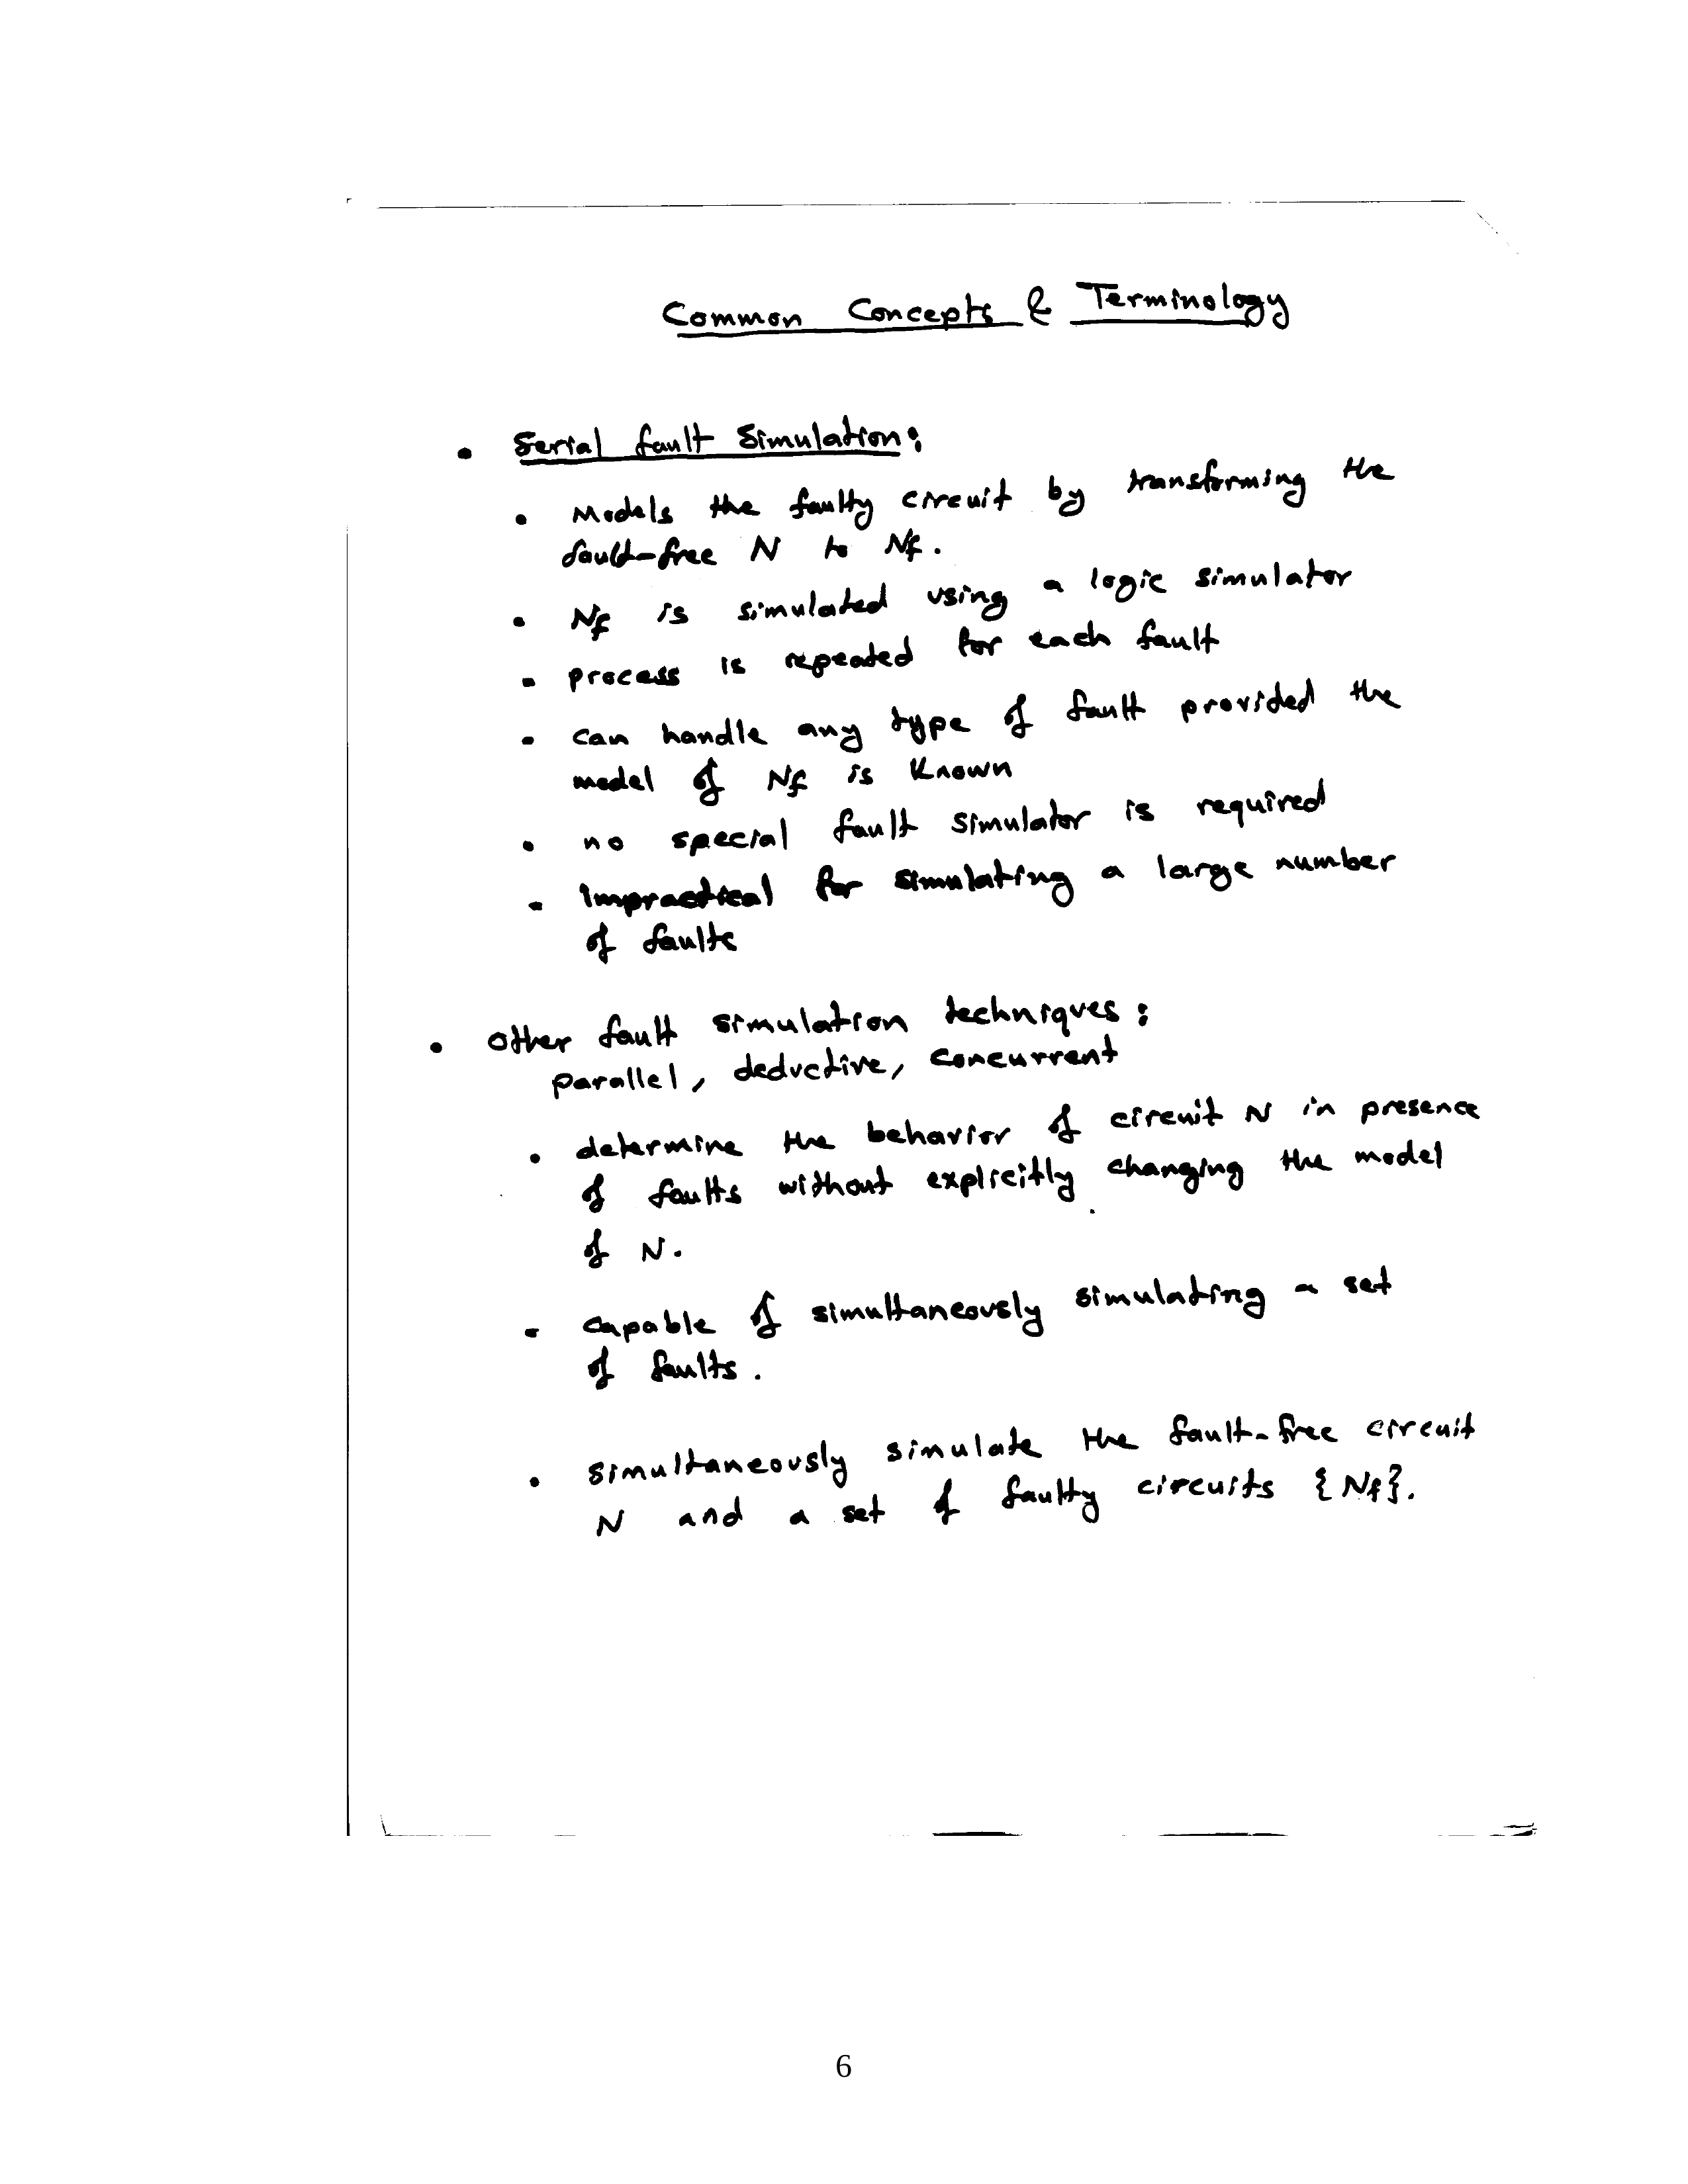 Common Concepts & Terminology
• Serial fault simulation:
• Models the faulty circuit by transforming the
fault-free N to Nf.
• Nf is simulated using a logic simulator
• process is repeated for each fault
• can handle any type of fault provided the
model of Nf is known
• no special fault simulator is required
• impractical for simulating a large number
of faults
• other fault simulation techniques:
parallel, deductive, concurrent
• determine the behavior of circuit N in presence
of faults without explicitly changing the model
of N.
• capable of simultaneously simulating a set
of faults.
• simultaneously simulate the fault-free circuit
N and a set of faulty circuits {Nf}.
6